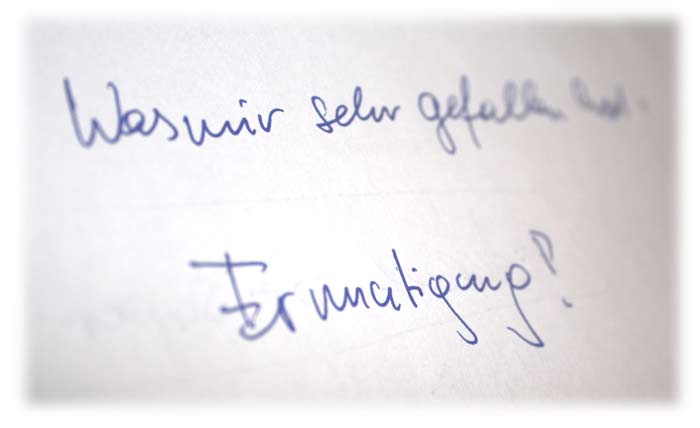 Was mir sehr gefallen hat.
Ermutigung!